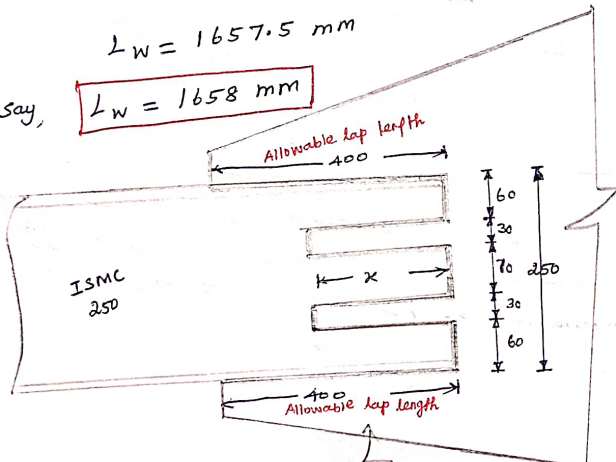 Lw = 1657.5 mm
say, Lw = 1658 mm
Allowable lap length
400
60
30
70
250
30
60
x
ISMC
250
400
Allowable lap length